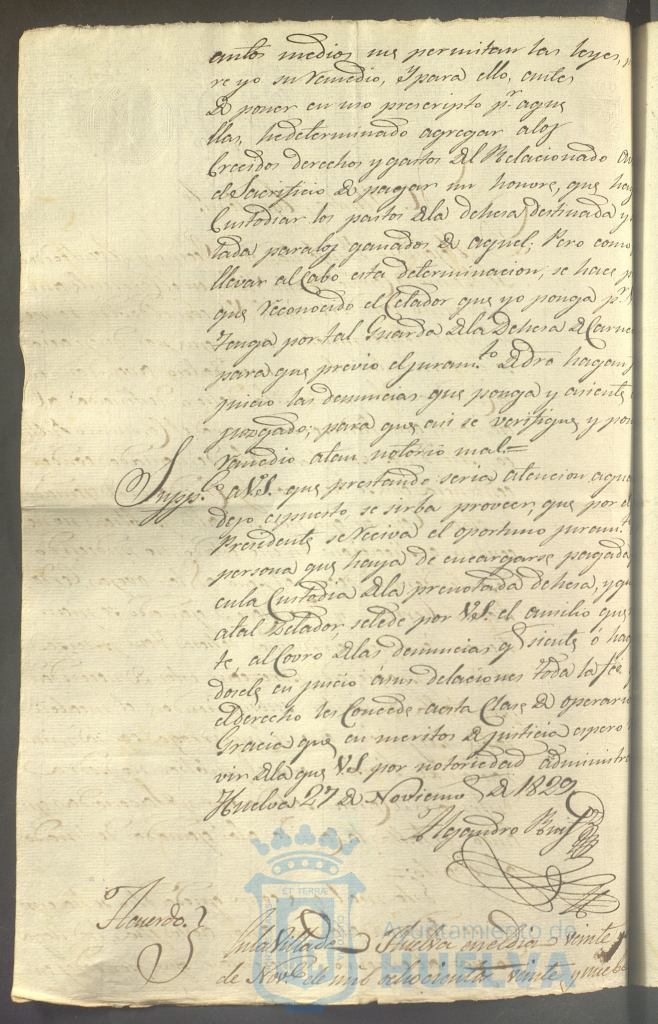 antos medios me permitan las leyes,
re yo su remedio, Y para ello, antes
de poner en uso prescripto pr. aque
llas, he determinado agregar a los
crecidos derechos y gastos del Relacionado
el Sacrificio de pagar un hombre, que hay
Custodiar los pastos dela dehesa destinada y
tada para los ganados de aquel; Pero como
llevar al Cabo esta determinacion, se hace
que reconocido el Celador que yo ponga pr.
Tenga por tal Guarda dela Dehesa de Carne
para que previo el juramto. de dro hagan
juicio las denuncias que ponga y asiente
juzgado; para que asi se verifique y pon
remedio atan notorio mal=
Suppco. a V.S. que prestando seria atencion aqua
dejo espuesto se sirba proveer, que por el
Presidente se Reciva el oportuno juramto.
persona que haya de encargarse pagada
enla Custodia dela prenotada dehesa, y qe
atal Zelador, sele de por V.S. el ausilio que
te, al Covro delas denuncias qe siente ó hag
dosele en juicio ásus delaciones toda la fée
el derecho les Concede aesta Clase de operario
Gracia que en meritos de justicia espero
vir dela que V.S. por notoriedad administr
Huelva 27 de Noviemb. de 1829
Alejandro Ruiz
Acuerdo.
Enla Villa de Huelva enel dia veinte y
de Nove. de mil ochocientos veinte y nuebe
ET TERRAE
Ayuntamiento de
HUELVA